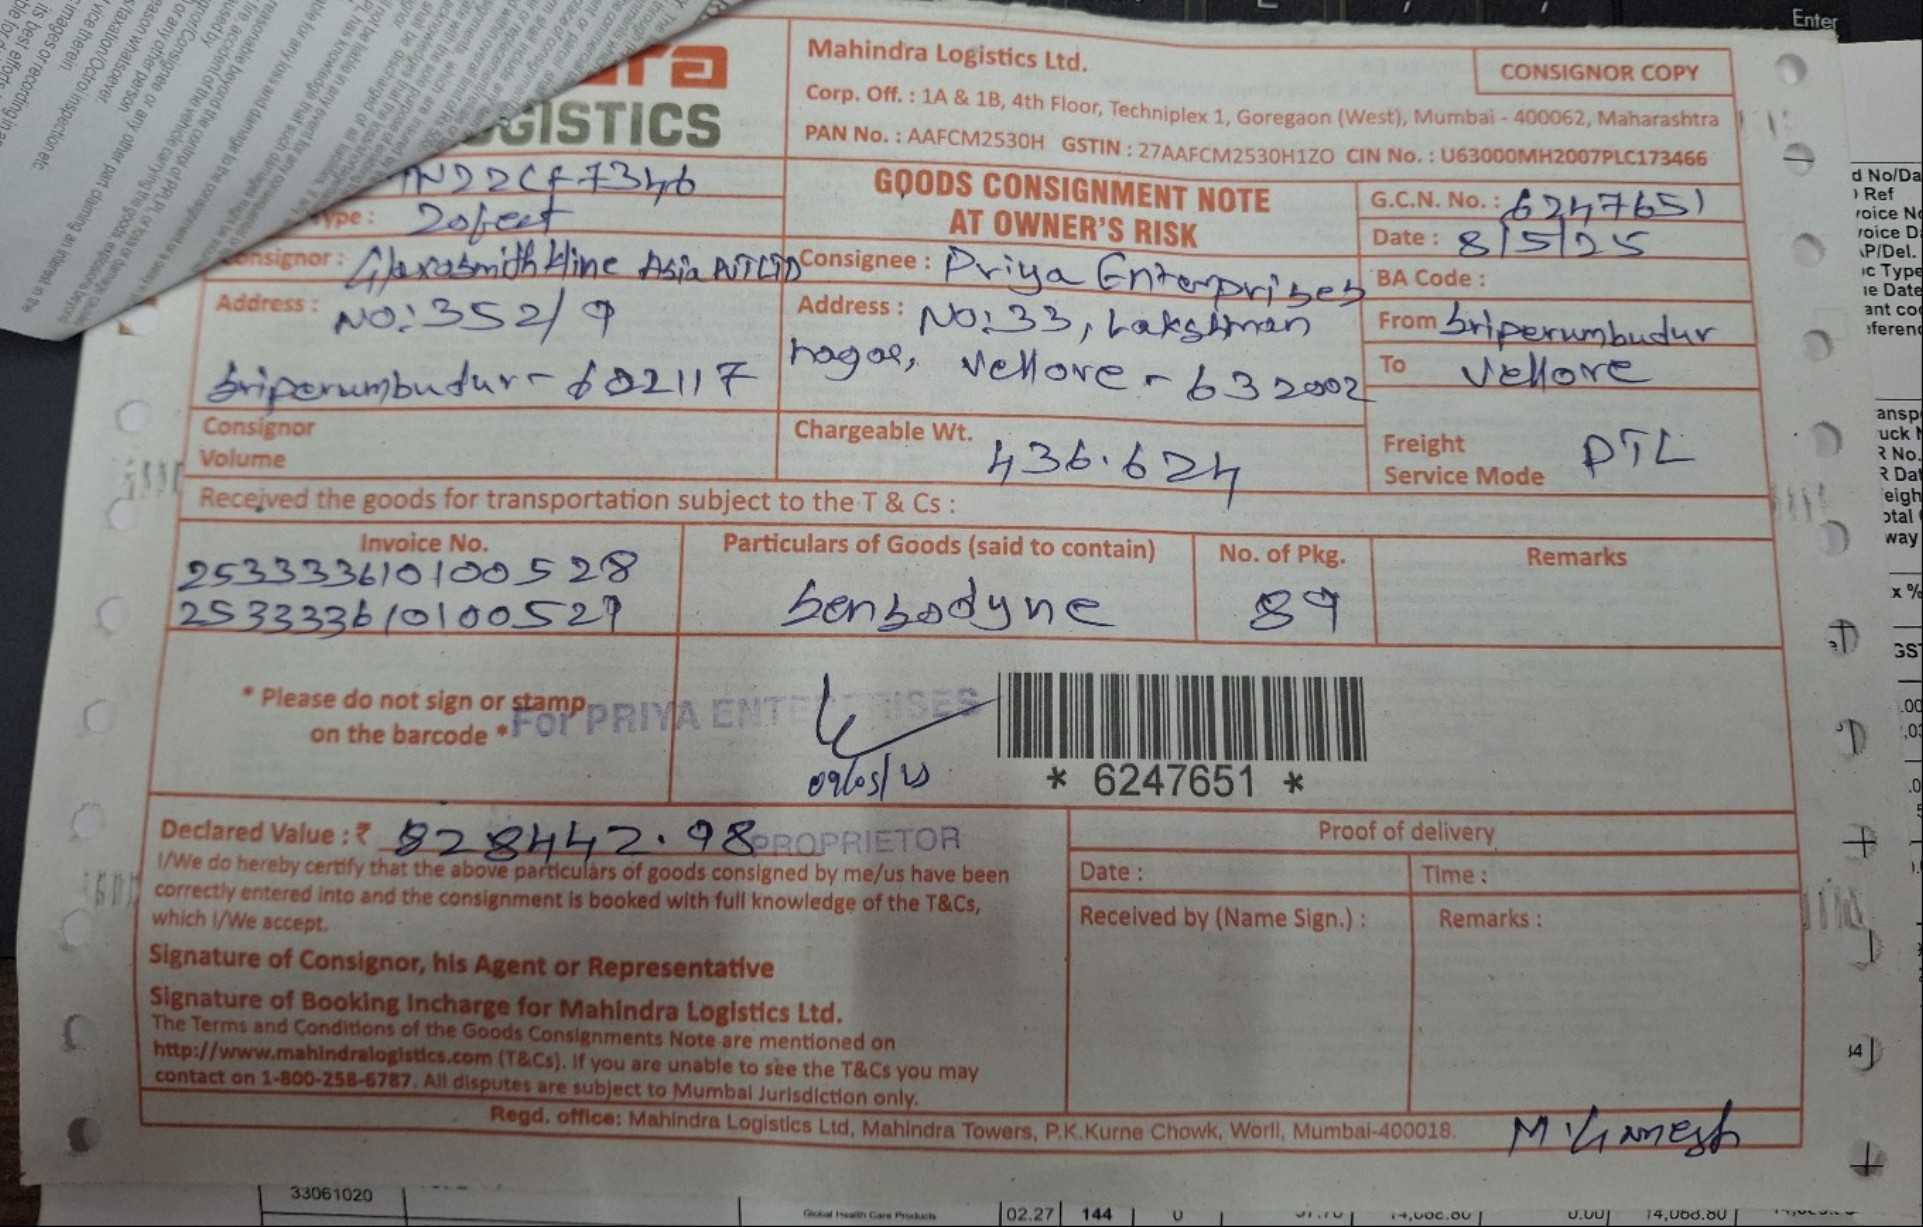 Enter
Mahindra Logistics Ltd.
CONSIGNOR COPY
Corp. Off. : 1A & 1B, 4th Floor, Techniplex 1, Goregaon (West), Mumbai - 400062, Maharashtra
PAN No. : AAFCM2530H GSTIN : 27AAFCM2530H1ZO CIN No. : U63000MH2007PLC173466
GISTICS
TN22CF7346
GOODS CONSIGNMENT NOTE
AT OWNER'S RISK
G.C.N. No. : 6247651
ype : 20feet
Date : 8/5/25
onsignor : Glaxosmithkline Asia PVT LTD
Consignee : Priya Enterprises
BA Code :
Address : NO: 352/9
Sriperumbudur - 602117
Address : NO: 33, Lakshman
nagar, Vellore - 632002
From Sriperumbudur
To Vellore
Consignor
Volume
Chargeable Wt. 436.624
Freight
Service Mode PTL
Received the goods for transportation subject to the T & Cs :
Invoice No. Particulars of Goods (said to contain) No. of Pkg. Remarks
253333610100528
253333610100529 Sensodyne 89
* Please do not sign or stamp
on the barcode *
For PRIYA ENTERPRISES
09/05/25
* 6247651 *
Declared Value : ₹ 828442.98
PROPRIETOR
I/We do hereby certify that the above particulars of goods consigned by me/us have been
correctly entered into and the consignment is booked with full knowledge of the T&Cs,
which I/We accept.
Signature of Consignor, his Agent or Representative
Signature of Booking Incharge for Mahindra Logistics Ltd.
The Terms and Conditions of the Goods Consignments Note are mentioned on
http://www.mahindralogistics.com (T&Cs). If you are unable to see the T&Cs you may
contact on 1-800-258-6787. All disputes are subject to Mumbai Jurisdiction only.
Proof of delivery
Date : Time :
Received by (Name Sign.) : Remarks :
Regd. office: Mahindra Logistics Ltd, Mahindra Towers, P.K.Kurne Chowk, Worli, Mumbai-400018.
M. Ganesh
33061020
Global Health Care Products
02.27 144 0